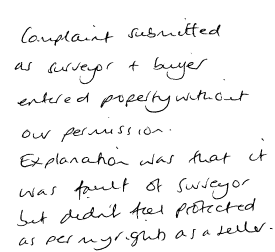 Complaint submitted
as surveyor + buyer
entered property without
our permission.
Explanation was that it
was fault of surveyor
but didn't feel protected
as per my rights as a seller.